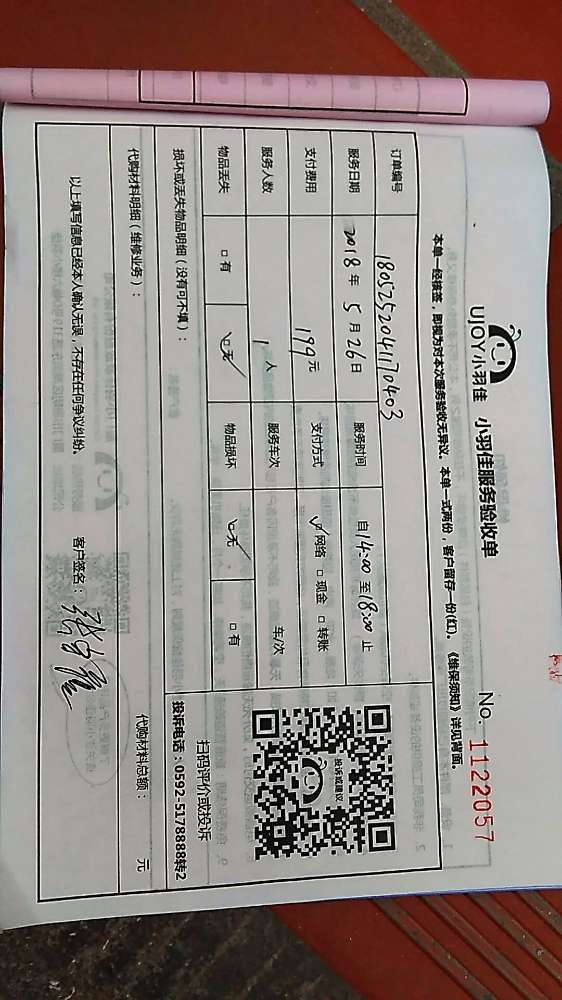 UJOY小羽佳 小羽佳服务验收单
No. 1122057
本单一经核签，即视为对本次服务验收无异议。本单一式两份，客户留存一份(红)。《维保须知》详见背面。
订单编号 1805252041170403
服务日期 2018年5月26日 服务时间 自14:00至18:00止
支付费用 199元 支付方式 ☑网络 □现金 □转账
服务人数 1人 服务车次 车/次
物品丢失 □有 ☑无 物品损坏 ☑无 □有
投诉或建议
扫码评价或投诉
投诉电话：0592-5178888转2
损坏或丢失物品明细（没有可不填）：
代购材料明细（维修业务）： 代购材料总额： 元
以上填写信息已经本人确认无误，不存在任何争议纠纷。 客户签名：